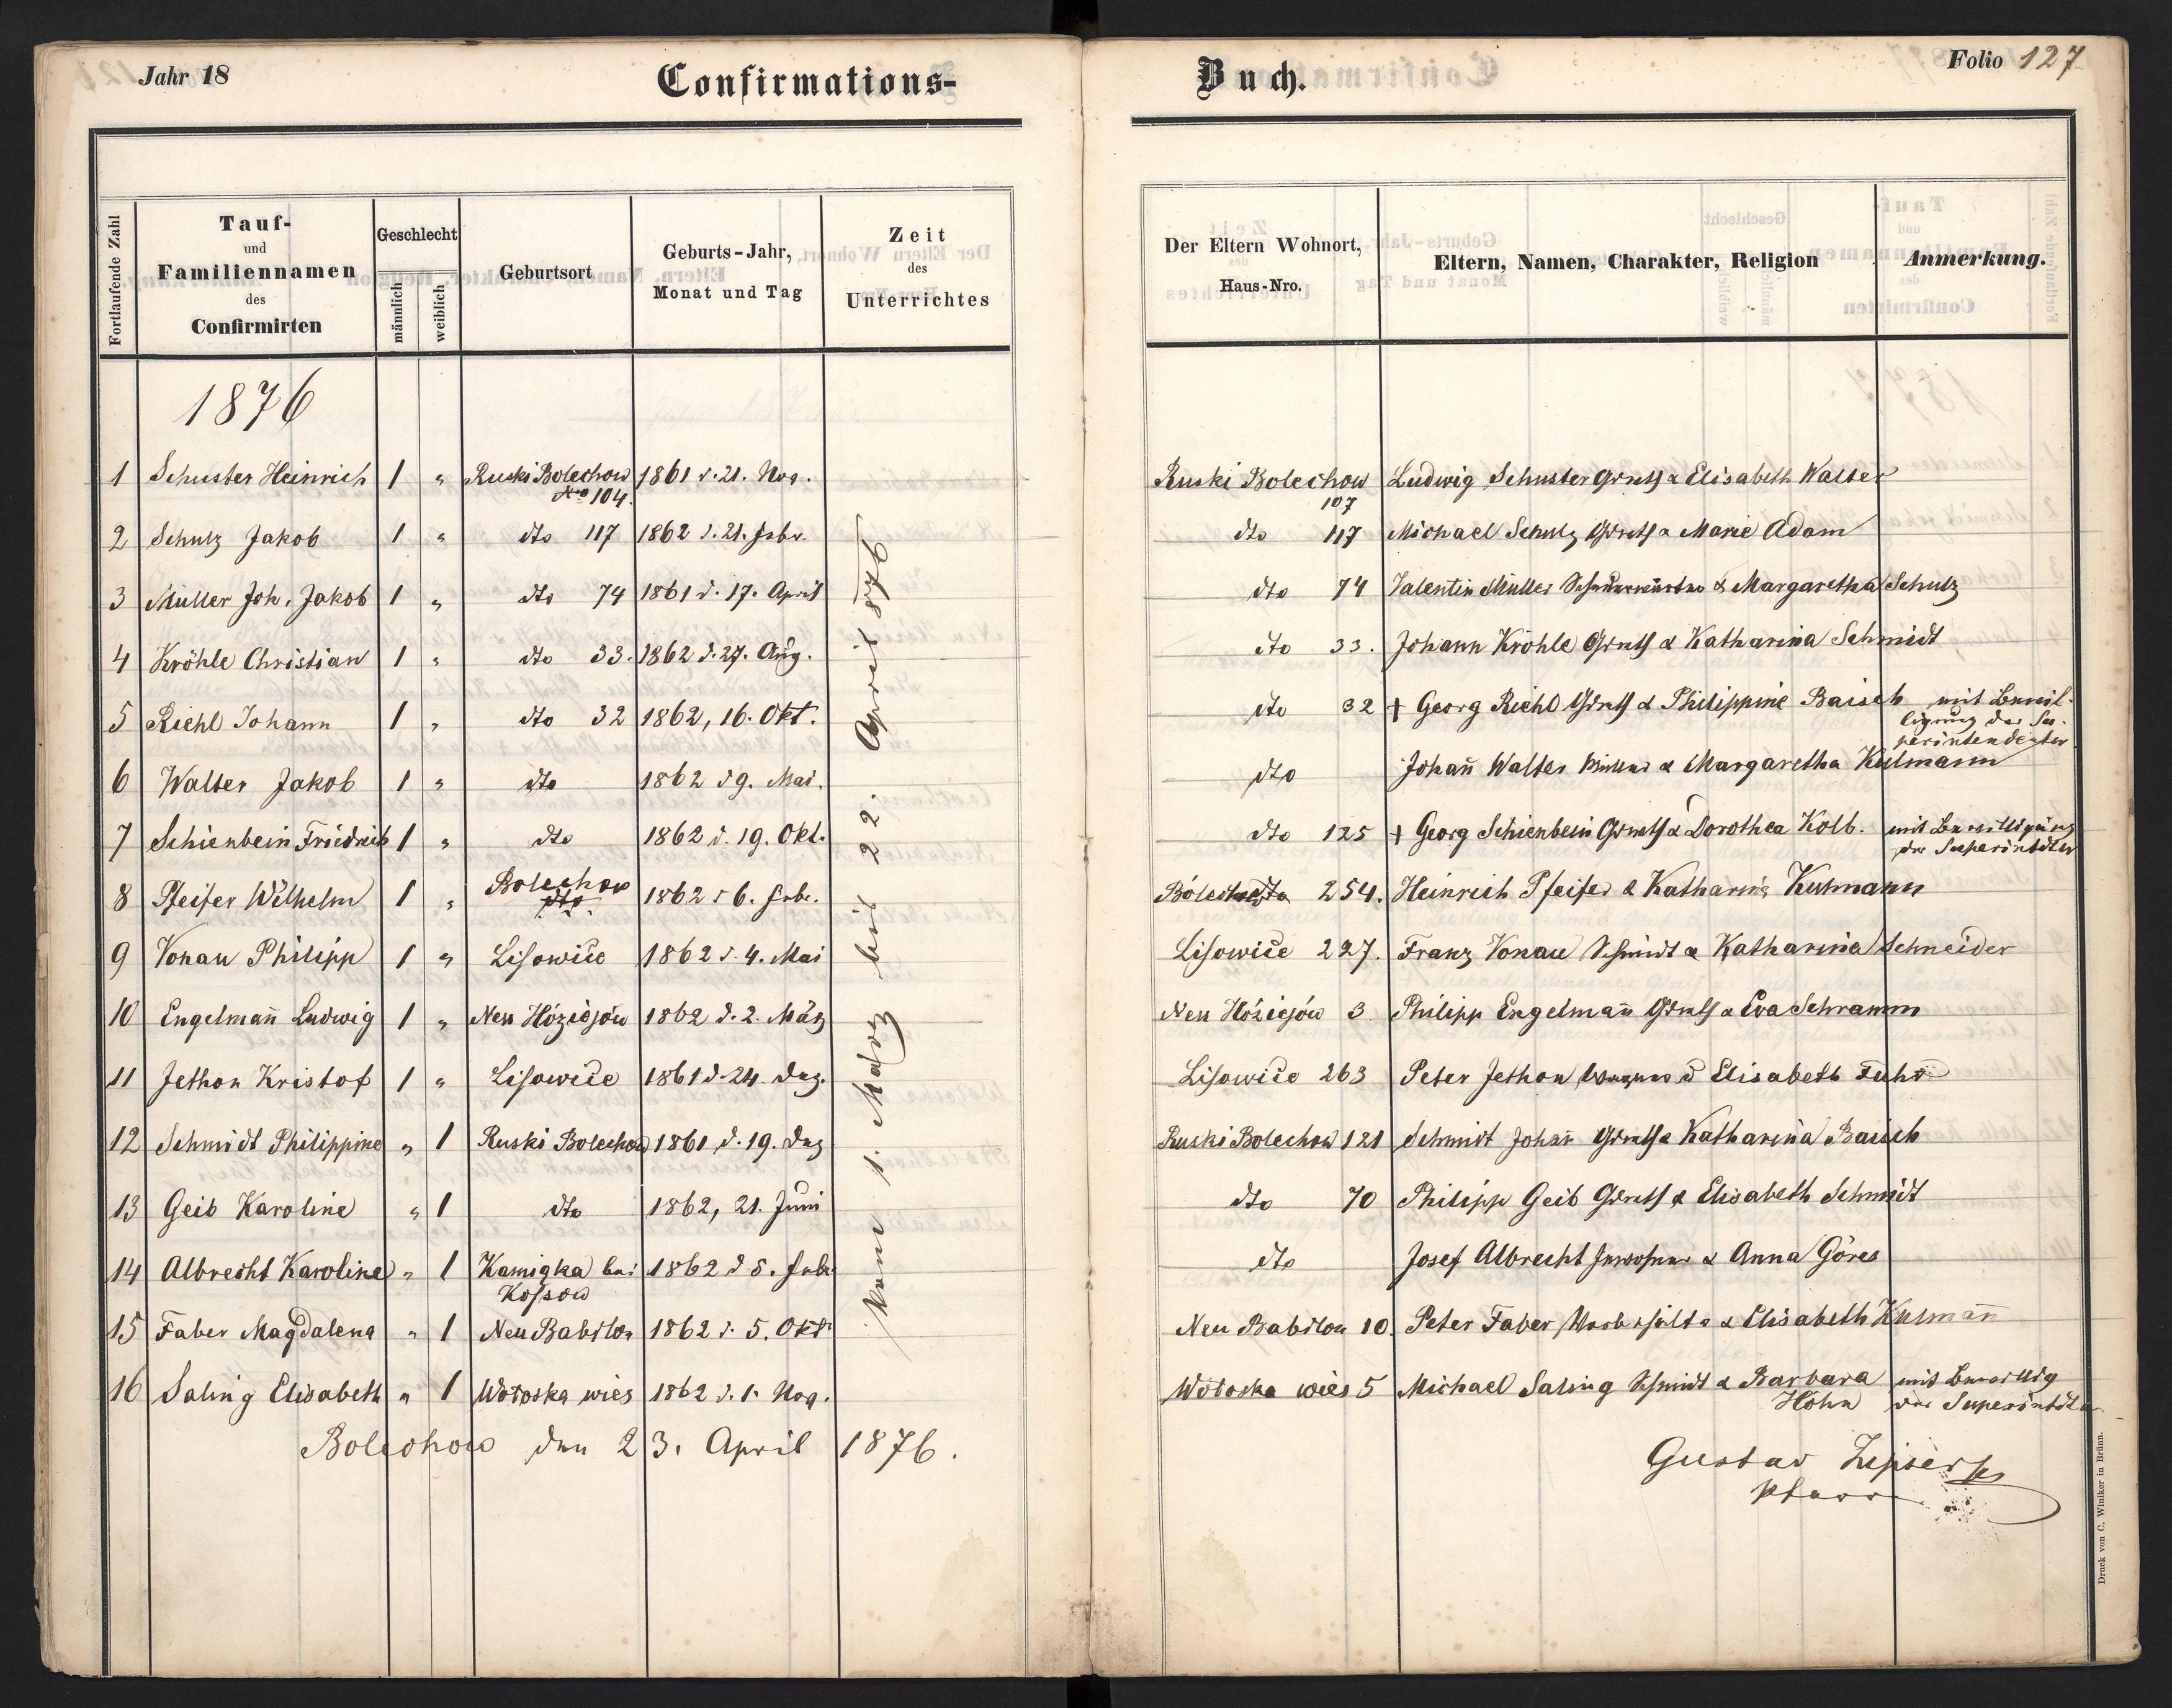 Jahr 18
Confirmations-
Buch.
Folio 127
Fortlaufende Zahl
Tauf-
und
Familiennamen
des
Confirmirten
Geschlecht
männlich
weiblich
Geburtsort
Geburts-Jahr,
Monat und Tag
Zeit
des
Unterrichtes
Der Eltern Wohnort,
Haus-Nro.
Eltern, Namen, Charakter, Religion
Anmerkung.
1876
1 Schuster Heinrich 1 " Ruski Bolechow 1861 d. 21. Nov. Ruski Bolechow Ludwig Schuster Grndb & Elisabeth Walter
Nro 104. 107
2 Schulz Jakob 1 " dto 117 1862 d. 21. Febr. dto 117 Michael Schulz Grndb & Marie Adam
3 Müller Joh. Jakob 1 " dto 74 1861 d. 17. April dto 74 Valentin Müller & Margaretha Schulz
4 Kröhle Christian 1 " dto 33. 1862 d. 27. Aug. dto 33. Johann Kröhle Grndb & Katharina Schmidt
5 Riehl Johann 1 " dto 32 1862, 16. Okt. dto 32 + Georg Riehl Grndb & Philippine Baisch mit Bewil-
ligung der Su-
perintendenten
6 Walter Jakob 1 " dto 1862 d 9. Mai. dto Johañ Walter Müller & Margaretha Kulmann
7 Schienbein Friedrich 1 " dto 1862 d. 19. Okt. dto 125 + Georg Schienbein Grndb & Dorothea Kolb. mit Bewilligung
der Superintdten
8 Pfeifer Wilhelm 1 " Bolechow 1862 d 6. Febr. Bolechow 254. Heinrich Pfeifer & Katharina Kulmann
dto
9 Vonau Philipp 1 " Lisowice 1862 d. 4. Mai Lisowice 227. Franz Vonau Schmidt & Katharina Schneider
10 Engelmañ Ludwig 1 " Neu 1862 d. 2. März Neu 3 Philipp Engelmañ Grndb & Eva Schramm
11 Jethon Kristof 1 " Lisowice 1861 d. 24. Dez. Lisowice 263 Peter Jethon Wagner & Elisabeth Fuhr
12 Schmidt Philippine " 1 Ruski Bolechow 1861, d. 19. Dez Ruski Bolechow 121 Schmidt Johañ Grndb & Katharina Baisch
13 Geib Karoline " 1 dto 1862, 21. Juni dto 70 Philipp Geib Grndb & Elisabeth Schmidt
14 Albrecht Karoline " 1 Kamionka bei 1862 d 5. Febr dto Josef Albrecht & Anna Göres
Kossow
15 Faber Magdalena " 1 Neu Babilon 1862 d. 5. Okt. Neu Babilon 10. Peter Faber & Elisabeth Kulmañ
16 Saling Elisabeth " 1 Wołoska wies 1862 d. 1. Nov. Wołoska wies 5 Michael Saling Schmidt & Barbara mit Bewillig
Höhn der Superintdten
vom 1. März bis 22. April 876
Bolechow den 23. April 1876.
Gustav Zipser
Pfarr
Druck von C. Winiker in Brünn.